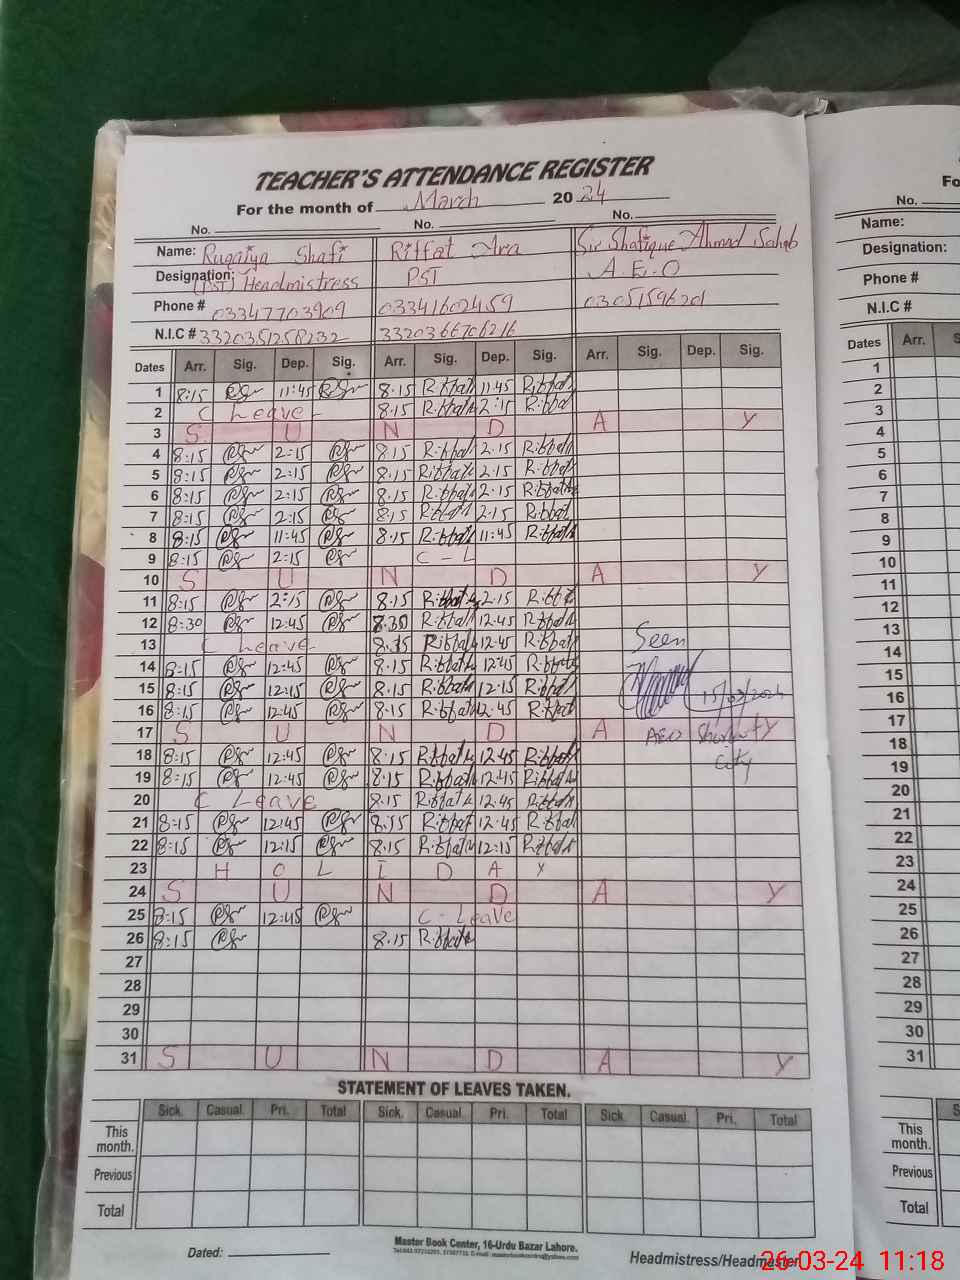 TEACHER'S ATTENDANCE REGISTER
For the month of March 2024
No. No. No.
Name: Ruqaiya Shafi Riffat Ara Sir Shafique Ahmad Sahab
Designation: (PST) Headmistress PST A.E.O
Phone # 03347703909 03341602459 03051596201
N.I.C # 3320351258232 3320366706216
Dates Arr. Sig. Dep. Sig. Arr. Sig. Dep. Sig. Arr. Sig. Dep. Sig.
1 8:15 11:45 8.15 Riffat 11:45 Riffat
2 C Leave 8.15 Riffat 2:15 Riffat
3 S U N D A Y
4 8:15 2:15 8.15 Riffat 2.15 Riffat
5 8:15 2:15 8.15 Riffat 2.15 Riffat
6 8:15 2:15 8.15 Riffat 2.15 Riffat
7 8:15 2:15 8.15 Riffat 2.15 Riffat
8 8:15 11:45 8.15 Riffat 11:45 Riffat
9 8:15 2:15 C - L
10 S U N D A Y
11 8:15 2:15 8.15 Riffat 2.15 Riffat
12 8:30 12:45 8.30 Riffat 12.45 Riffat
13 C Leave 8.35 Riffat 12.45 Riffat Seen
14 8:15 12:45 8.15 Riffat 12:45 Riffat
15 8:15 12:15 8.15 Riffat 12.15 Riffat 15/03/2024
16 8:15 12:45 8.15 Riffat 12.45 Riffat
17 S U N D A Y AEO
18 8:15 12:45 8.15 Riffat 12.45 Riffat City
19 8:15 12:45 8.15 Riffat 12.45 Riffat
20 C Leave 8.15 Riffat 12.45 Riffat
21 8:15 12:45 Riffat 12.45 Riffat
22 8:15 12:15 8.15 Riffat 12:15 Riffat
23 H O L I D A Y
24 S U N D A Y
25 8:15 12:45 C - Leave
26 8:15 8.15 Riffat
27
28
29
30
31 S U N D A Y
STATEMENT OF LEAVES TAKEN.
Sick. Casual. Pri. Total Sick. Casual. Pri. Total Sick. Casual. Pri. Total
This month.
Previous
Total
Dated:
Master Book Center, 16-Urdu Bazar Lahore.
Headmistress/Headmester
No.
Name:
Designation:
Phone #
N.I.C #
Dates Arr.
1
2
3
4
5
6
7
8
9
10
11
12
13
14
15
16
17
18
19
20
21
22
23
24
25
26
27
28
29
30
31
This month.
Previous
Total
26-03-24 11:18